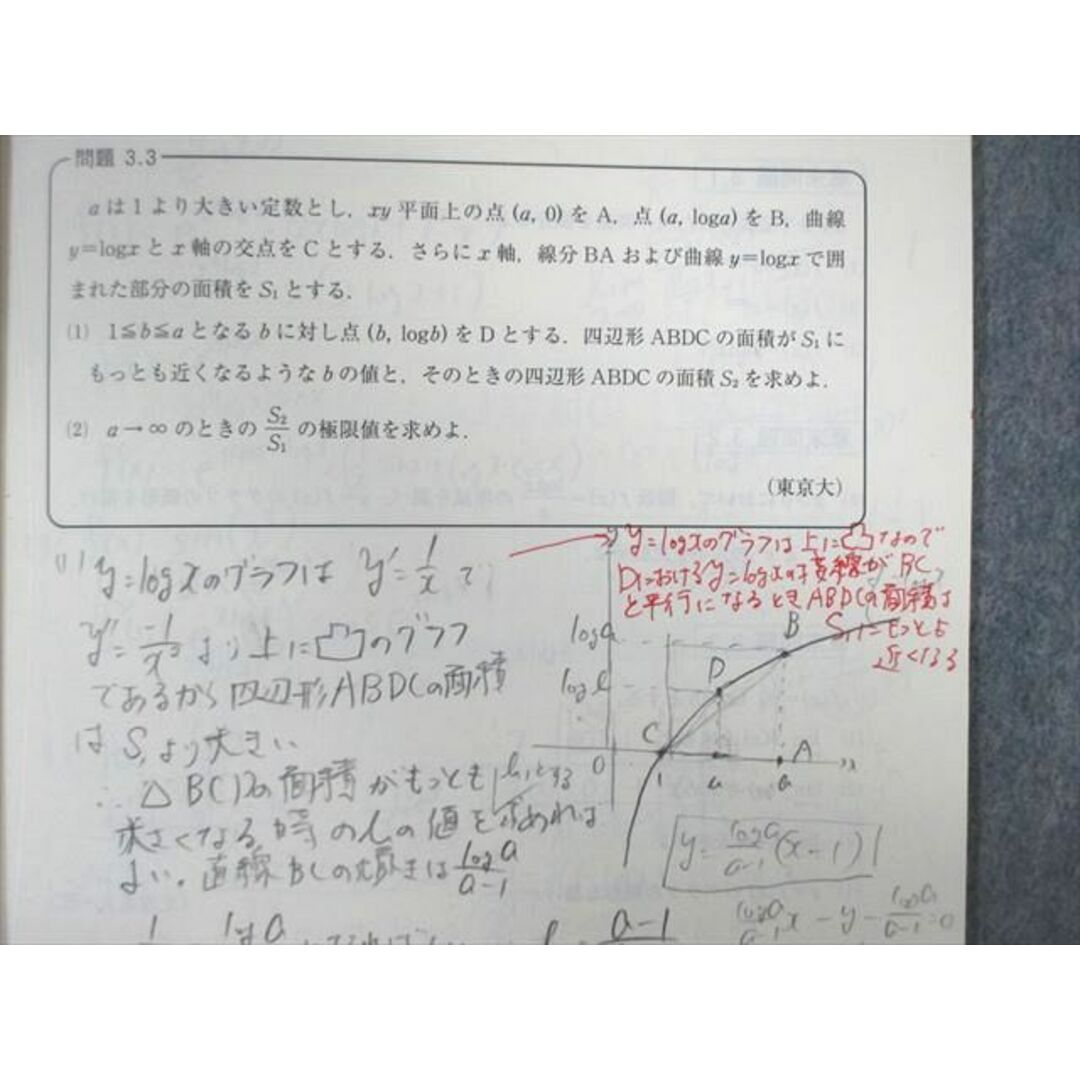 問題 3.3
aは1より大きい定数とし，xy平面上の点(a, 0)をA，点(a, loga)をB，曲線
y=logxとx軸の交点をCとする．さらにx軸，線分BAおよび曲線y=logxで囲
まれた部分の面積をS₁とする．
(1) 1≦b≦aとなるbに対し点(b, logb)をDとする．四辺形ABDCの面積がS₁に
もっとも近くなるようなbの値と，そのときの四辺形ABDCの面積S₂を求めよ．
(2) a→∞のときの S₂/S₁ の極限値を求めよ．
(東京大)
y=logxのグラフは上に凸なので
Dにおけるy=logxの接線がBC
と平行になるときABDCの面積は
S₁にもっとも
近くなる
(1) y=logxのグラフは y'=1/x で
y''=-1/x² より上に凸のグラフ
であるから四辺形ABDCの面積
は S₁より大きい
∴ △BCDの面積がもっとも
大きくなる時のbの値を求めれば
よい。直線BCの傾きは loga/a-1
y
loga
logb
B
D
C
A
0
1
x
y=loga/a-1(x-1)
loga/a-1 x - y - loga/a-1 =0
a-1